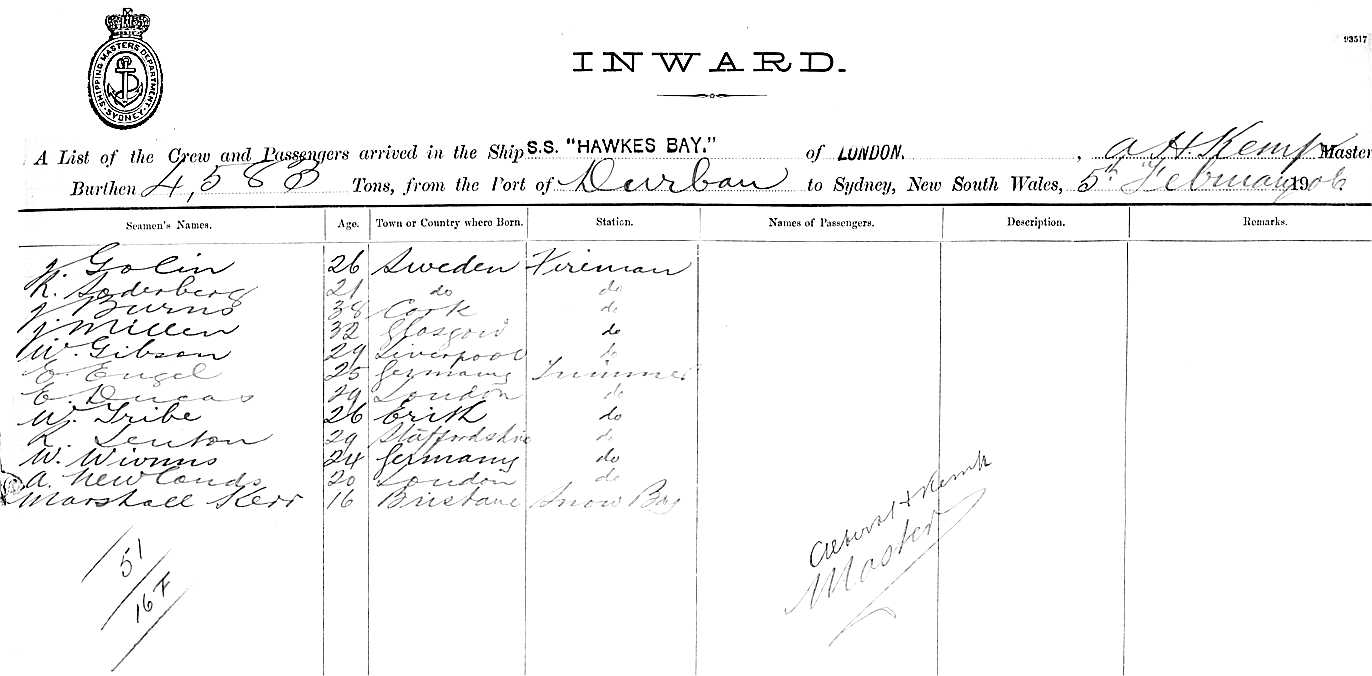 SHIPPING MASTERS DEPARTMENT SYDNEY
93517
INWARD.
A List of the Crew and Passengers arrived in the Ship S.S. "HAWKES BAY." of LONDON. , A H. Kemp Master
Burthen 4,583 Tons, from the Port of Durban to Sydney, New South Wales, 5th February 1906
Seamen's Names. Age. Town or Country where Born. Station. Names of Passengers. Description. Remarks.
J. Golin 26 Sweden Fireman
K. Soderberg 21 do do
J Burns 38 Cork do
J. Millen 32 Glasgow do
W. Gibson 29 Liverpool do
E. Engel 25 Germany Trimmer
E. Ducas 29 London do
W. Tribe 26 Erith do
R. Lenton 29 Staffordshire do
W. 24 Germany do
A. Newlands 20 London do
Marshall Kerr 16 Brisbane Boy
51
16 F
H Kemp
Master